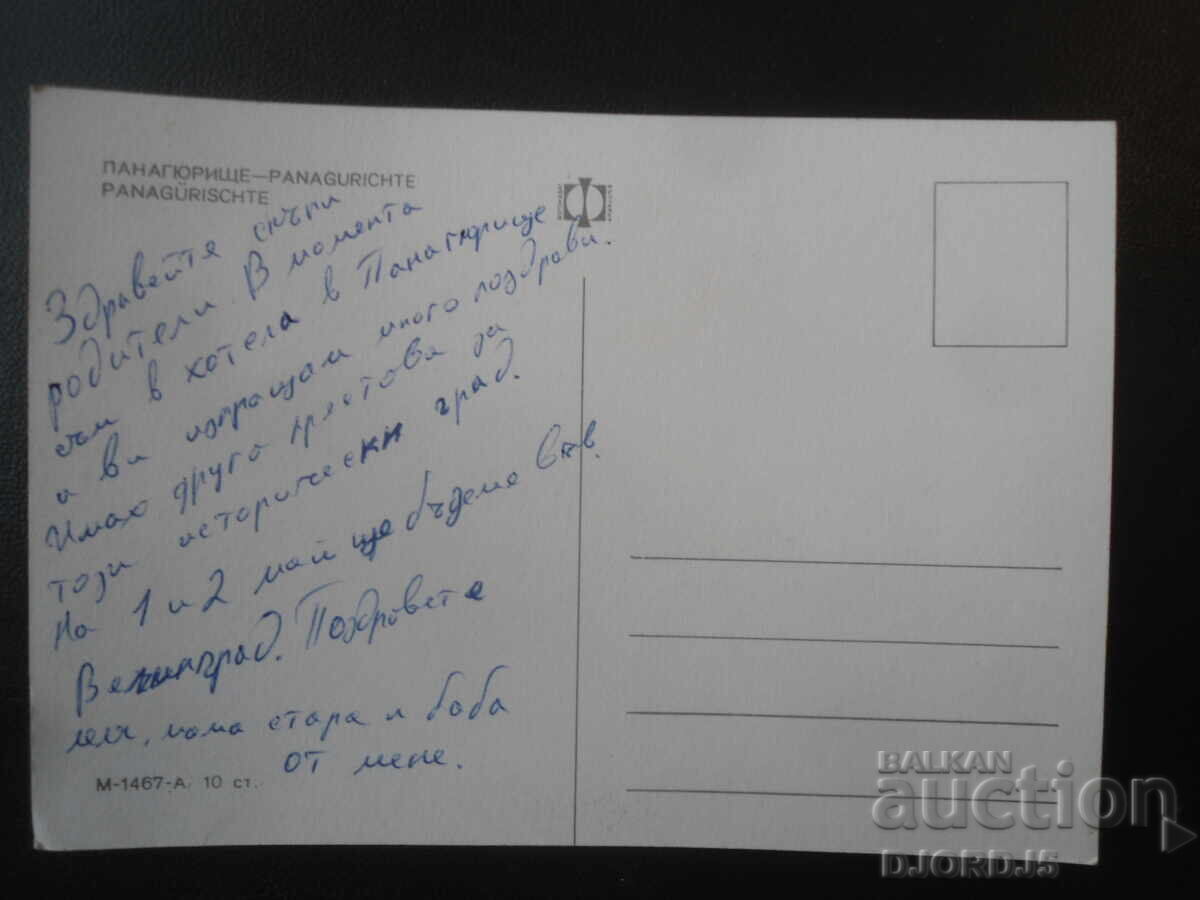 ПАНАГЮРИЩЕ—PANAGURICHTE
PANAGÜRISCHTE
Здравейте скъпи
родители. В момента
съм в хотела в Панагюрище
и ви изпращам много поздрави.
Имах друга представа за
този исторически град.
На 1 и 2 май ще бъдеме във
Велинград. Поздравете
лели, мама стара и баба
от мене.
М-1467-А 10 ст.
BALKAN
auction
DJORDJ5